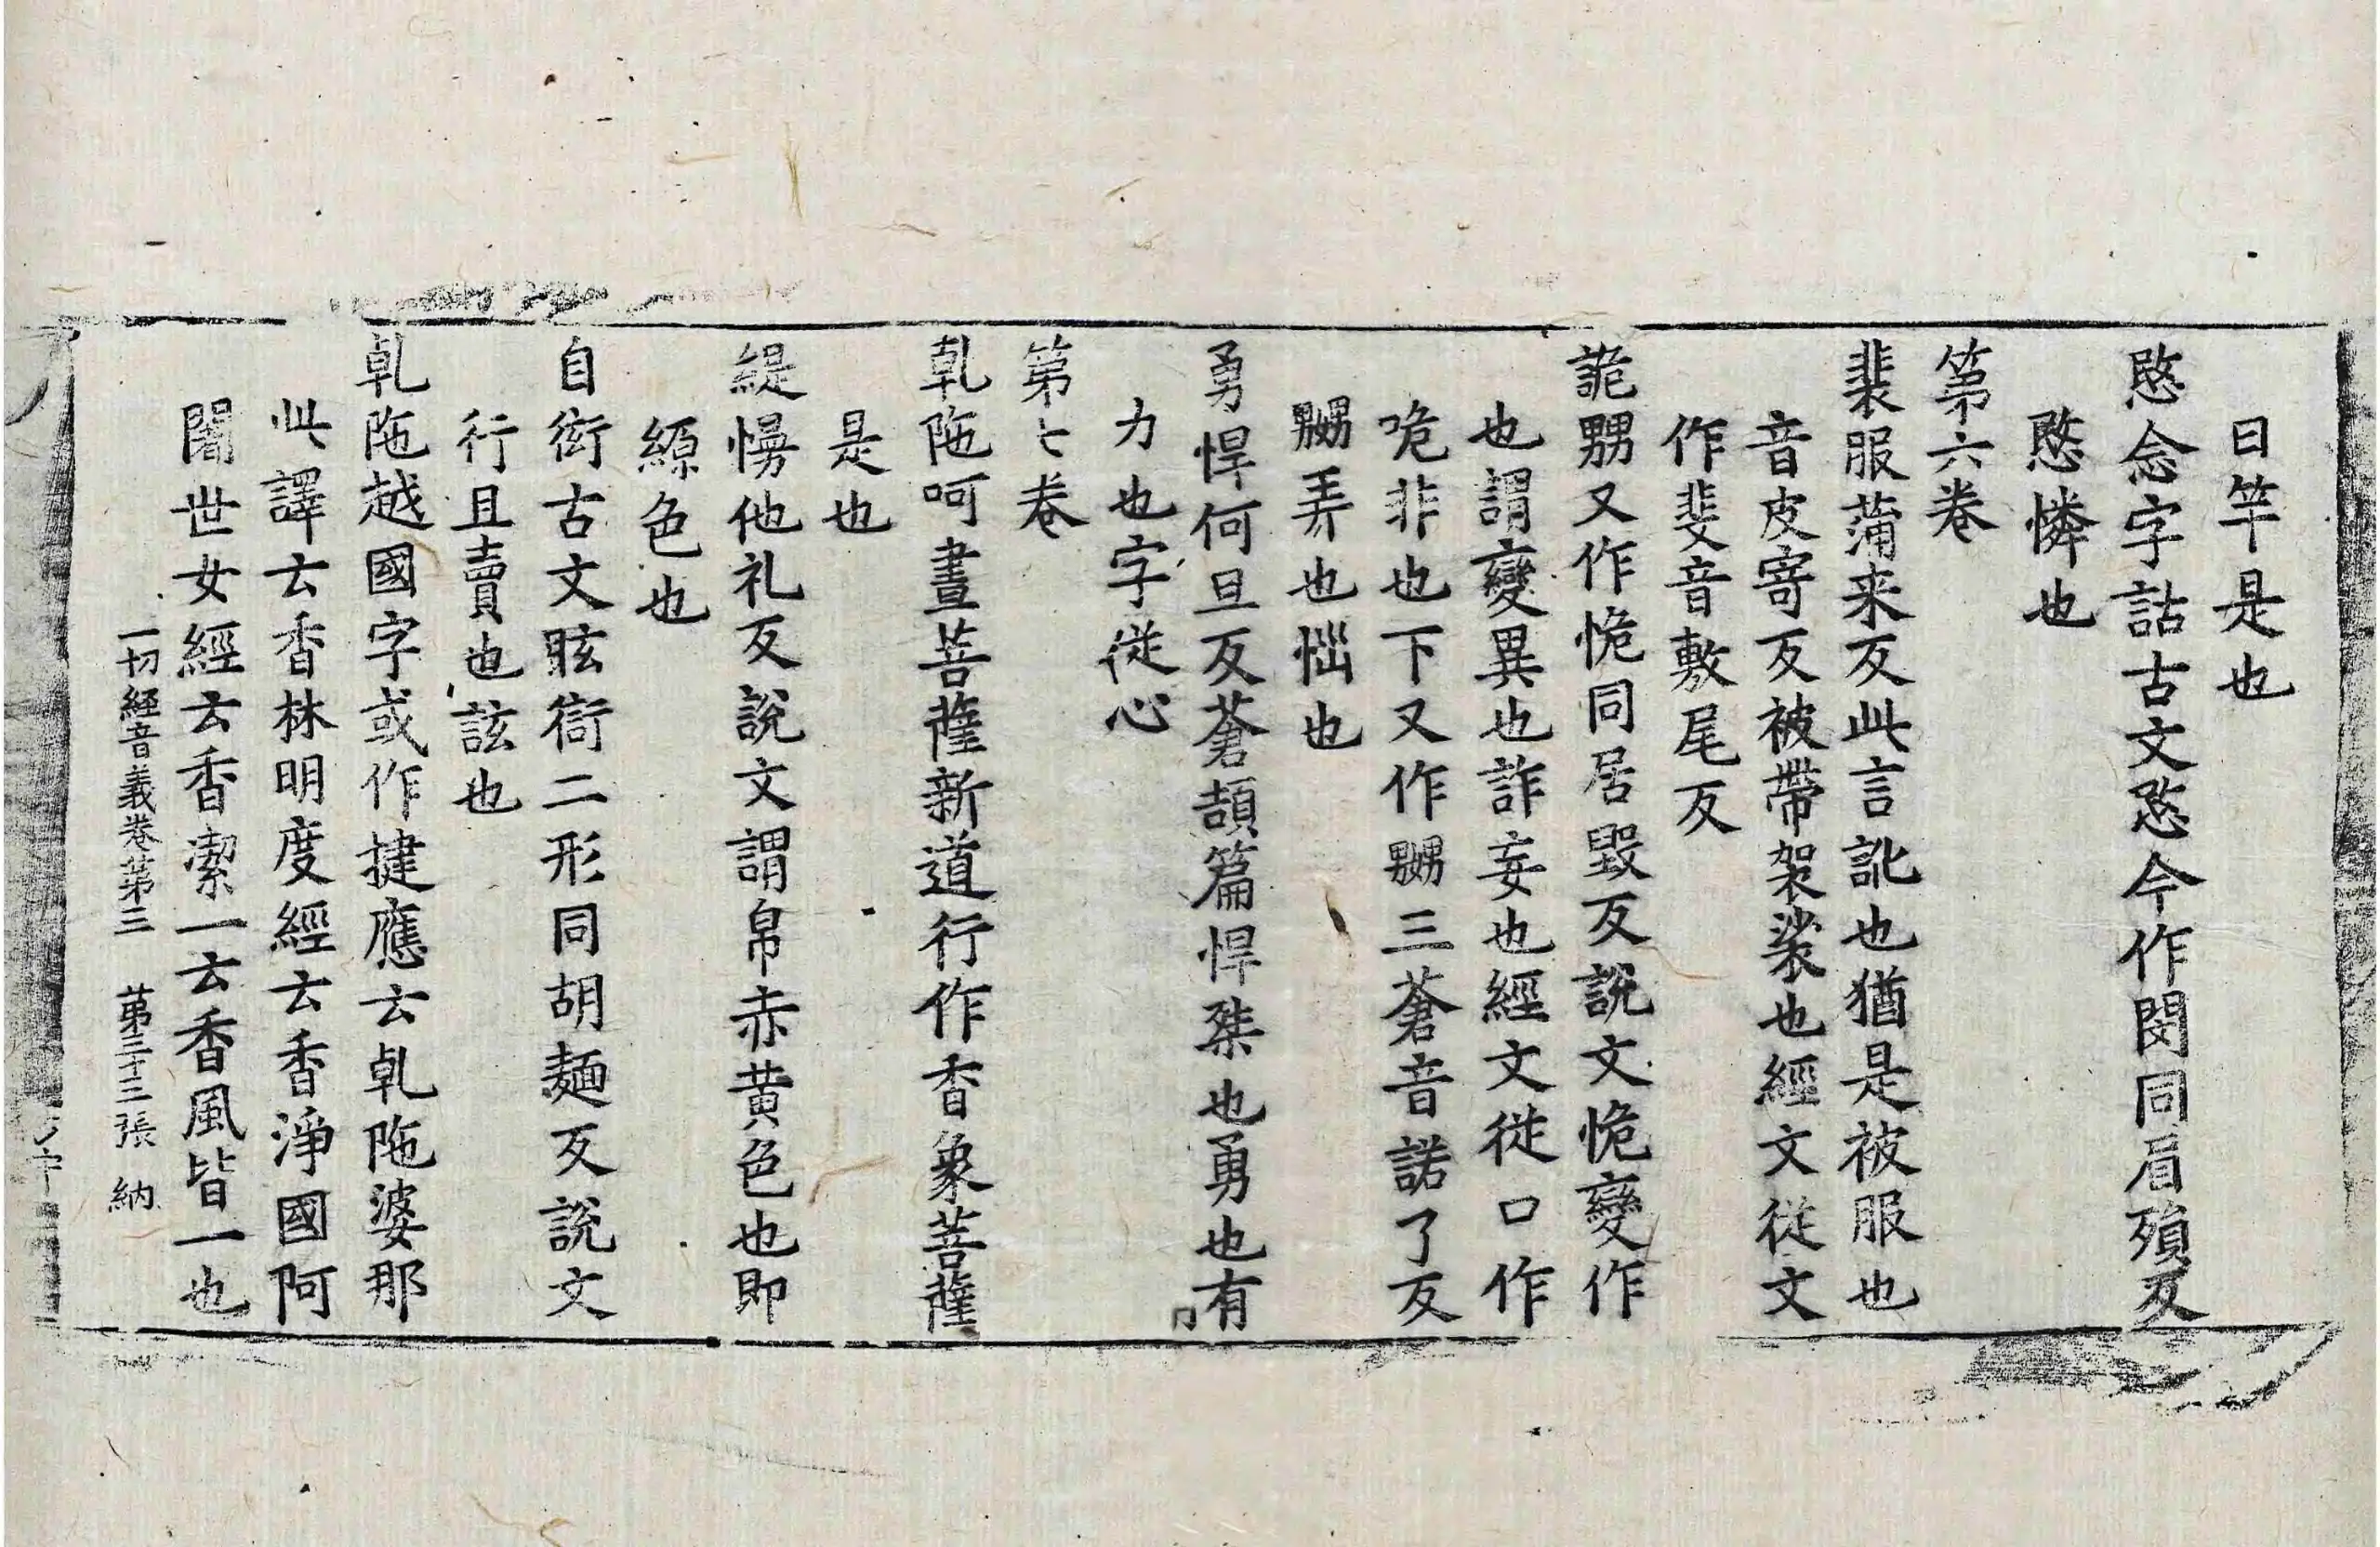 曰竿是也
愍念字詁古文愍今作閔同眉殞反
愍憐也
第六卷
裴服蒲来反此言訛也猶是被服也
音皮寄反被帶袈裟也經文從文
作斐音敷尾反
詭嬲又作恑同居毀反說文恑變作
也謂變異也詐妄也經文從口作
咙非也下又作嬲三蒼音諾了反
嬲弄也惱也
勇悍何旦反蒼頡篇悍桀也勇也有
力也字從心
第七卷
乹陁呵晝菩薩新道行作香象菩薩
是也
緹㡆他礼反說文謂帛赤黄色也即
縓色也
自衒古文眩衒二形同胡麵反說文
行且賣也誸也
乹陁越國字或作揵應云乹陁婆那
此譯云香林明度經云香淨國阿
闍世女經云香潔一云香風皆一也
一切經音義卷第三 第三十三張 納